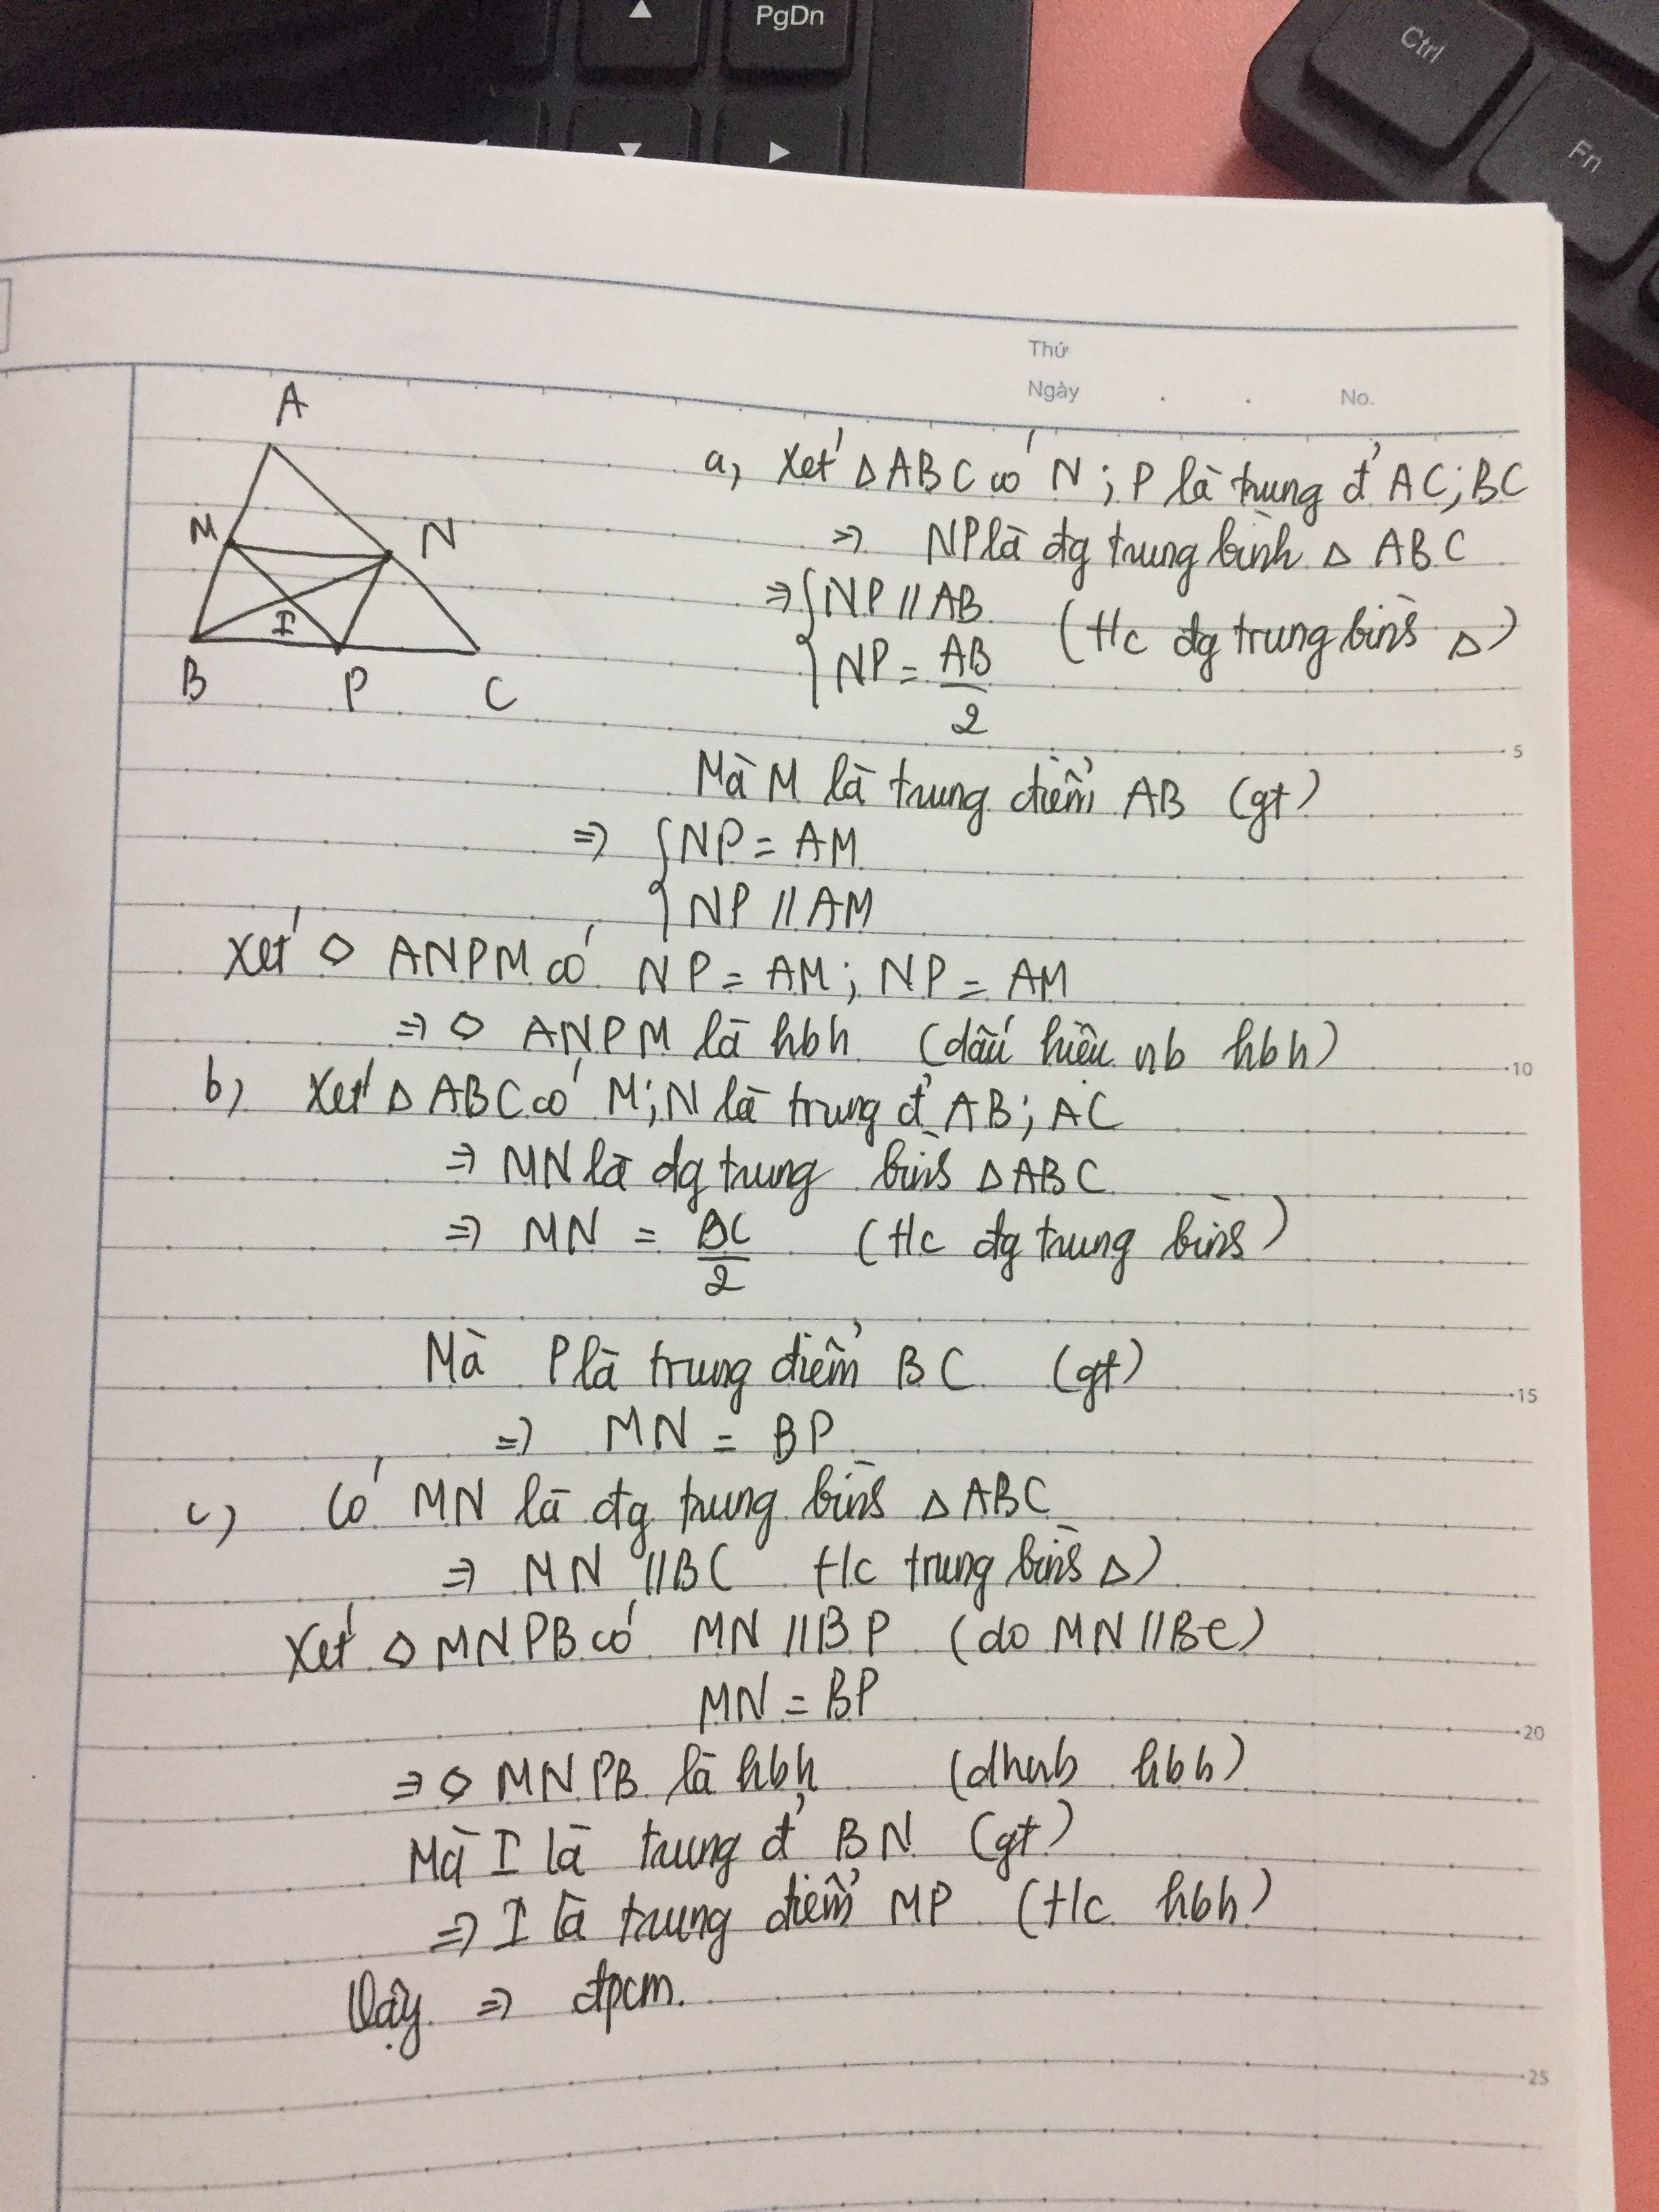 PgDn
Ctrl
Fn
Thứ
Ngày . . No.
A
M
N
I
B P C
a, Xét △ABC có N ; P là trung đ' AC; BC
=> NP là đg trung bình △ ABC
=> { NP // AB
NP = AB/2 (t/c đg trung bình △)
5
Mà M là trung điểm AB (gt)
=> { NP = AM
NP // AM
Xét ◇ ANPM có NP = AM ; NP = AM
=> ◇ ANPM là hbh (dấu hiệu nb hbh)
10
b) Xét △ ABC có M; N là trung đ' AB; AC
=> MN là đg trung bình △ABC
=> MN = BC/2 (t/c đg trung bình)
Mà P là trung điểm BC (gt)
15
=> MN = BP
c) Có MN là đg trung bình △ ABC
=> MN // BC t/c trung bình △)
Xét ◇ MNPB có MN // BP (do MN // BC)
MN = BP
20
=> ◇ MNPB là hbh (dhnb hbh)
Mà I là trung đ' BN (gt)
=> I là trung điểm MP (t/c hbh)
Vậy => đpcm.
25